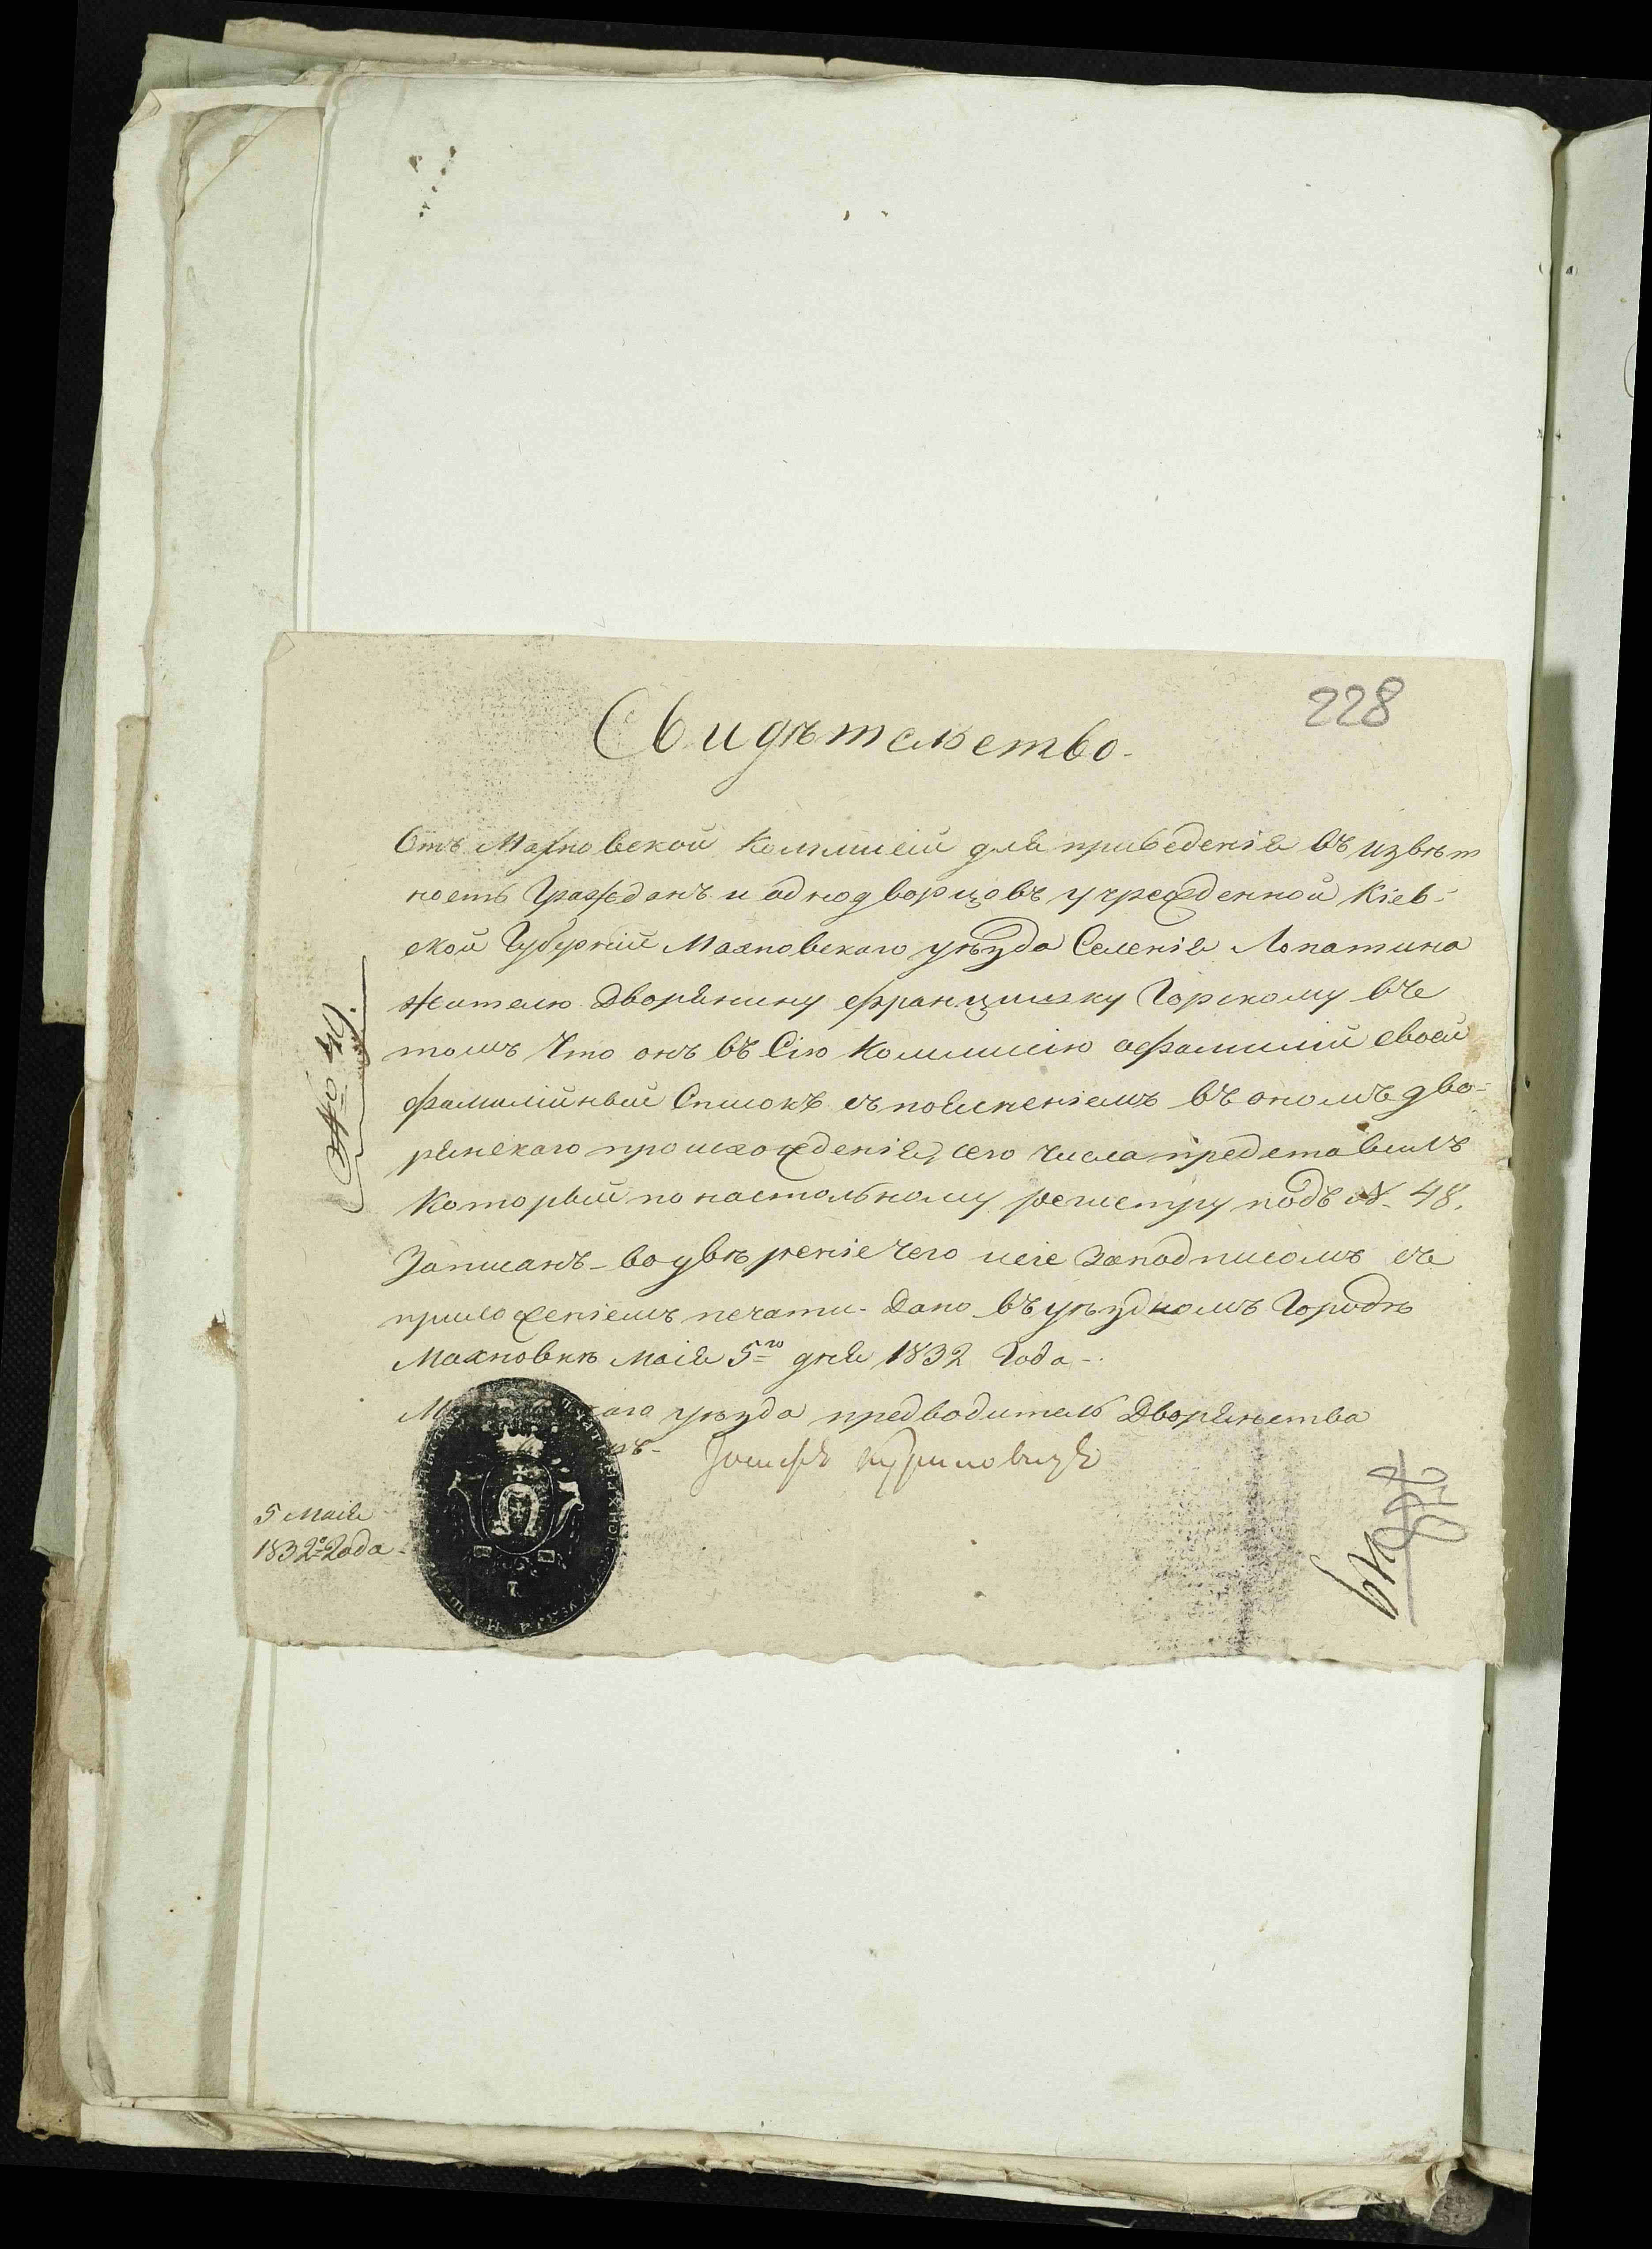 228
Свидѣтельство.
Отъ Махновской Коммисіи для приведенія въ извѣст
ность Гражданъ и однодворцовъ учрежденной Кіев-
ской Губерніи Махновскаго уѣзда Селенія Лопатина
жителю Дворянину Францишку Горскому въ
томъ что онъ въ Сію Коммисію о фамиліи своей
фамилійный Списокъ съ поясненіемъ въ ономъ дво-
рянскаго происхожденія, сего числа представилъ
который по настольному регистру подъ №. 48.
Записанъ - во увѣреніе чего сіе за подписомъ съ
приложеніемъ печати. Дано въ уѣздномъ Городѣ
Махновкѣ маія 5го дня 1832 Года.
уѣзда предводитель Дворянства
Іосифъ
5 Маія
1832 Года.
№ 49.